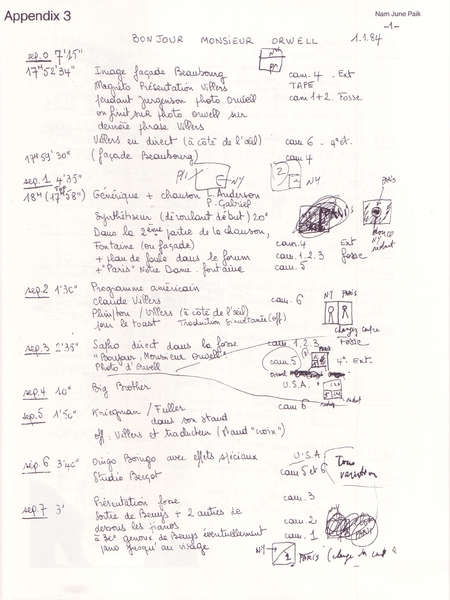 Appendix 3
Nam June Paik
-1-
BONJOUR MONSIEUR ORWELL
1.1.84
seq.0 7'15"
17H 52'34" Image façade Beaubourg cam. 4 Ext
Magnéto Présentation Villers TAPE
pendant photo Orwell cam 1+2 Fosse
on finit sur photo Orwell sur
dernière phrase Villers
Villers en direct (à côté de l'œil) cam 6 - 4° et.
17H 59' 30" (façade Beaubourg) cam 4
NY
NY
seq.1 4'35"
18H (17H 58") Générique + chanson L. Anderson
P. Gabriel
PARIS
Synthétiseur (déroulant début) 20"
Dans la 2ème partie de la chanson,
Fontaine (ou façade) cam. 4 Ext
+ plan de foule dans le forum cam. 1.2.3 fosse
+ "Paris" Notre Dame. fontaine cam. 5
seq.2 1'30" Programme américain
Claude Villers cam. 6
NY PARIS
Plimpton / Villers (à côté de l'œil)
pour le toast Traduction simultanée (off)
seq.3 2'35" Sapho direct dans la fosse cam. 1.2.3 Fosse
"Bonjour, Monsieur Orwell" cam. 5 PARIS 4° Ext
Photo d'Orwell
seq.4 10" Big Brother U.S.A.
seq.5 1'50" Kriegman / Fuller cam 6
dans son stand
off: Villers et traducteur (stand "voix")
seq.6 3'40" Oingo Boingo avec effets spéciaux U.S.A
Studio Berçot cam 5 et 6
seq.7 3' Présentation fosse cam. 3
Sortie de Beuys + 2 autres de cam. 2
dessous les pianos cam. 1
à 3e genoux de Beuys éventuellement
jusqu'au visage
NY PARIS